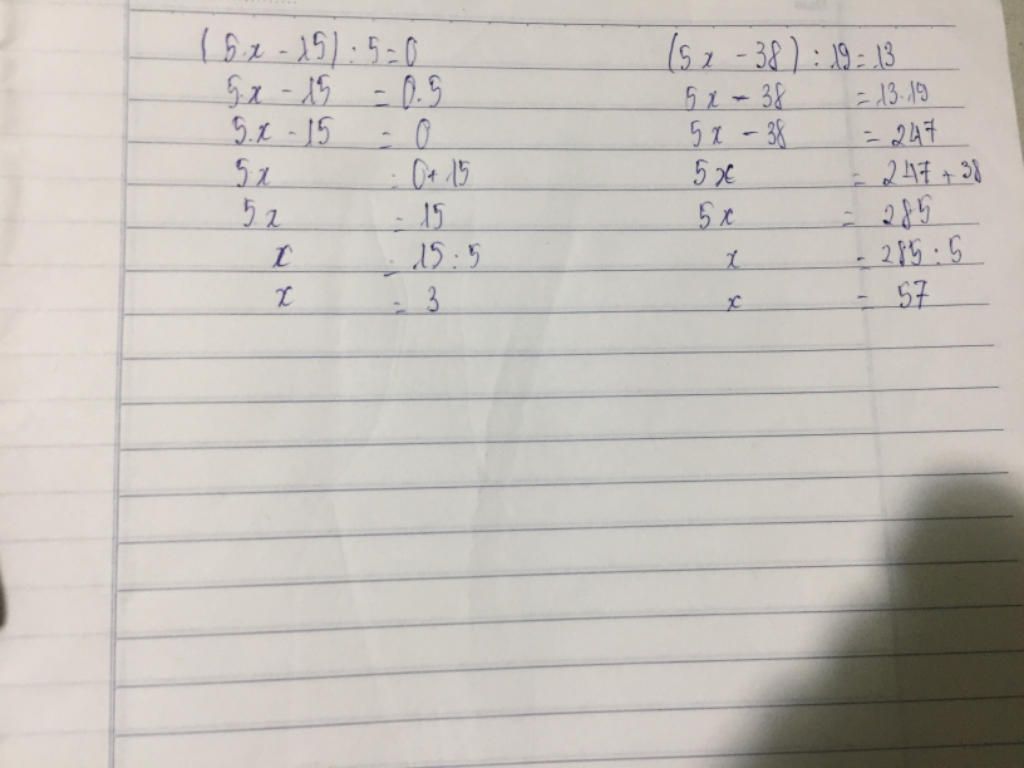 (5.x - 15) : 5 = 0
5.x - 15 = 0.5
5.x - 15 = 0
5x = 0 + 15
5x = 15
x = 15 : 5
x = 3
(5x - 38) : 19 = 13
5x - 38 = 13.19
5x - 38 = 247
5x = 247 + 38
5x = 285
x = 285 : 5
x = 57